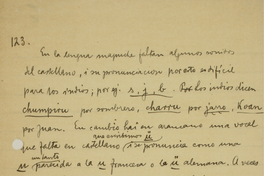 123.
En la lengua mapuche faltan algunos sonidos
del castellano, o su pronunciacion por esto es difícil
para los indios; por ej. s, j, b. Los indios dicen
chumpiru por sombrero, charru por jarro, Kuan
por Juan. En cambio hai en araucano una vocal
que escribimos ü
que falta en castellano i se pronuncia como una
u parecida a la u francesa o la ü alemana. A veces